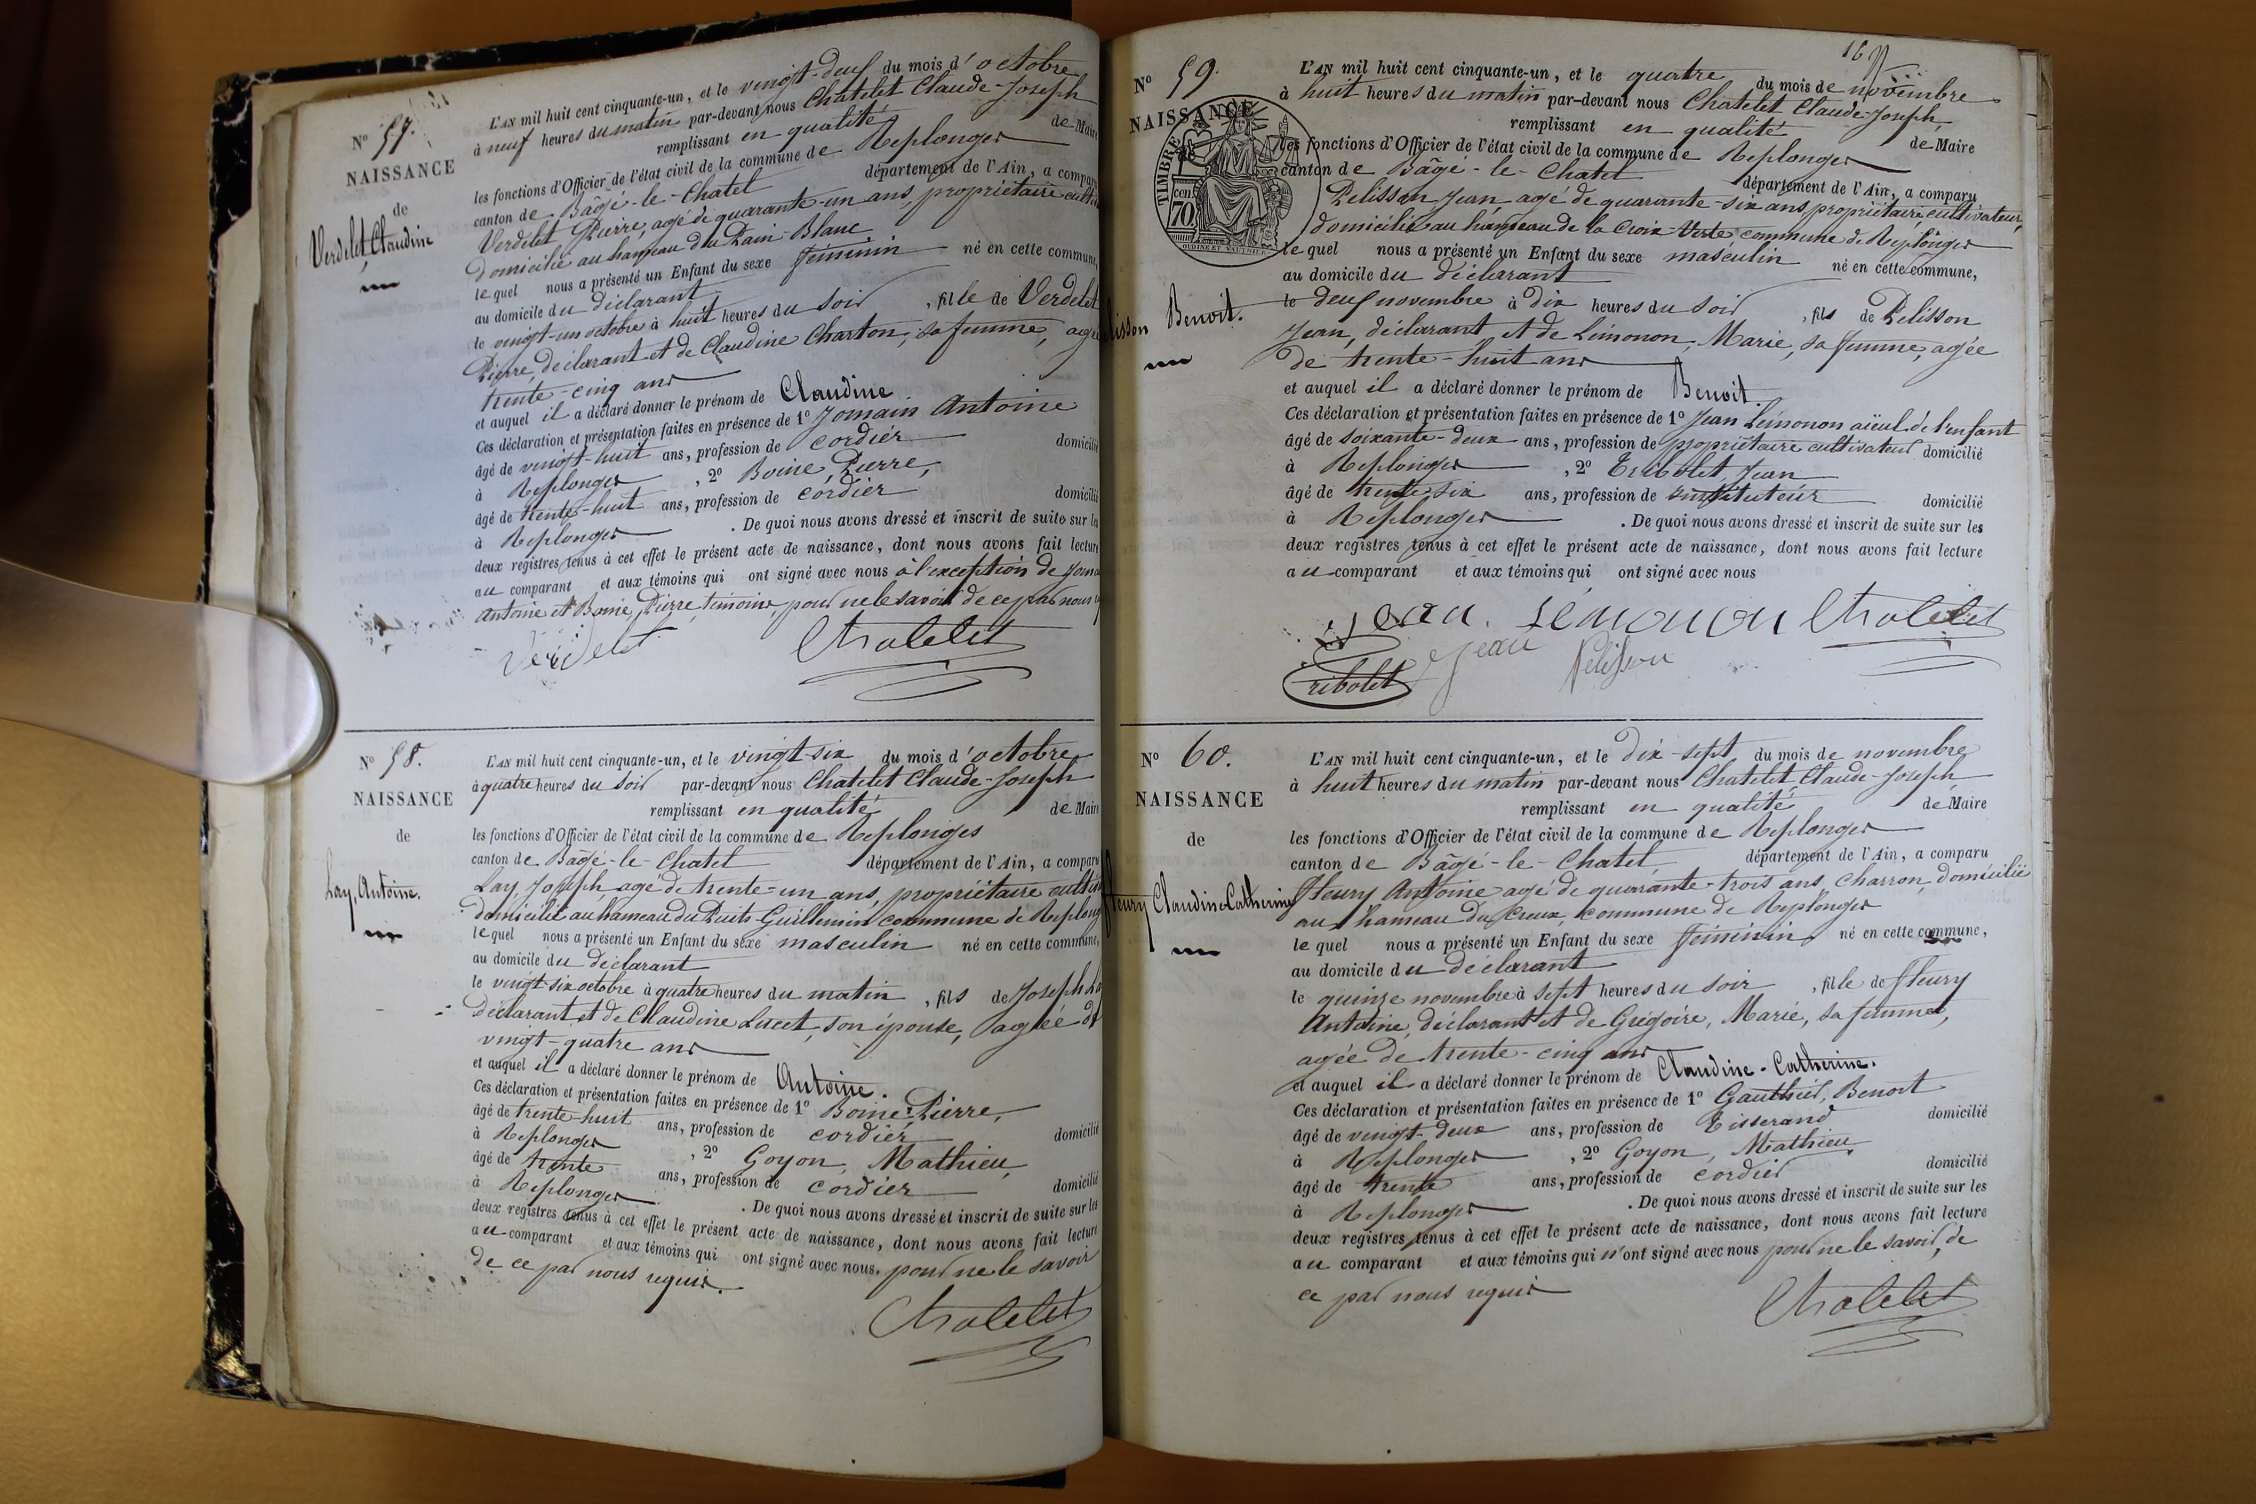 N° 57.
NAISSANCE
de
Verdelet, Claudine
L'AN mil huit cent cinquante-un, et le vingt-deux du mois d'octobre
à neuf heures du matin par-devant nous Chatelet Claude-Joseph
remplissant en qualité de Maire
les fonctions d'Officier de l'état civil de la commune de Replonges
canton de Bâgé-le-Chatel département de l'Ain, a comparu
Verdelet Pierre, agé de quarante-un ans, propriétaire
domicilié au hameau du Pain-Blanc
lequel nous a présenté un Enfant du sexe féminin né en cette commune,
au domicile du déclarant
le vingt-un octobre à huit heures du soir, fille de Verdelet
Pierre, déclarant et de Claudine Charton, sa femme, agée
trente-cinq ans
et auquel il a déclaré donner le prénom de Claudine
Ces déclaration et présentation faites en présence de 1° Jomain Antoine
âgé de vingt-huit ans, profession de cordier domicilié
à Replonges, 2° Boine Pierre,
âgé de trente-huit ans, profession de cordier domicilié
à Replonges. De quoi nous avons dressé et inscrit de suite sur les
deux registres tenus à cet effet le présent acte de naissance, dont nous avons fait lecture
au comparant et aux témoins qui ont signé avec nous à l'exception de
Antoine et Boine, Pierre, témoins, pour ne le savoir de ce par nous
Verdelet Chatelet
N° 58.
NAISSANCE
de
Lay, Antoine.
L'AN mil huit cent cinquante-un, et le vingt-six du mois d'octobre
à quatre heures du soir par-devant nous Chatelet Claude-Joseph
remplissant en qualité de Maire
les fonctions d'Officier de l'état civil de la commune de Replonges
canton de Bâgé-le-Chatel département de l'Ain, a comparu
Lay Joseph, agé de trente-un ans, propriétaire
domicilié au hameau du Puits-Guillemin commune de Replonges
lequel nous a présenté un Enfant du sexe masculin né en cette commune,
au domicile du déclarant
le vingt-six octobre à quatre heures du matin, fils de Joseph Lay
déclarant et de Claudine Lucet, son épouse, agée de
vingt-quatre ans
et auquel il a déclaré donner le prénom de Antoine.
Ces déclaration et présentation faites en présence de 1° Boine Pierre,
âgé de trente-huit ans, profession de cordier domicilié
à Replonges, 2° Goyon, Mathieu,
âgé de trente ans, profession de cordier domicilié
à Replonges. De quoi nous avons dressé et inscrit de suite sur les
deux registres tenus à cet effet le présent acte de naissance, dont nous avons fait lecture
au comparant et aux témoins qui ont signé avec nous. pour ne le savoir
de ce par nous requis.
Chatelet
N° 59.
NAISSANCE
TIMBRE
70
Benoit.
L'AN mil huit cent cinquante-un, et le quatre du mois de novembre
à huit heures du matin par-devant nous Chatelet Claude-Joseph
remplissant en qualité de Maire
les fonctions d'Officier de l'état civil de la commune de Replonges
canton de Bâgé-le-Chatel département de l'Ain, a comparu
Pelisson Jean, agé de quarante-six ans, propriétaire, cultivateur,
domicilié au hameau de la Croix-Verte commune de Replonges
lequel nous a présenté un Enfant du sexe masculin né en cette commune,
au domicile du déclarant
le deux novembre à dix heures du soir, fils de Pelisson
Jean, déclarant et de Lémonon, Marie, sa femme, agée
de trente-huit ans
et auquel il a déclaré donner le prénom de Benoit.
Ces déclaration et présentation faites en présence de 1° Jean Lémonon aïeul de l'enfant
âgé de soixante-deux ans, profession de propriétaire cultivateur domicilié
à Replonges, 2° Tribolet, Jean
âgé de trente six ans, profession de instituteur domicilié
à Replonges. De quoi nous avons dressé et inscrit de suite sur les
deux registres tenus à cet effet le présent acte de naissance, dont nous avons fait lecture
au comparant et aux témoins qui ont signé avec nous
Jean Lémonon Chatelet
Tribolet Jean Pelisson
N° 60.
NAISSANCE
de
Fleury Claudine-Catherine
L'AN mil huit cent cinquante-un, et le dix-sept du mois de novembre
à huit heures du matin par-devant nous Chatelet, Claude-Joseph
remplissant en qualité de Maire
les fonctions d'Officier de l'état civil de la commune de Replonges
canton de Bâgé-le-Chatel département de l'Ain, a comparu
Fleury Antoine agé de quarante-trois ans, charron, domicilié
au hameau du Creux, commune de Replonges
lequel nous a présenté un Enfant du sexe féminin né en cette commune,
au domicile du déclarant
le quinze novembre à sept heures du soir, fille de Fleury
Antoine, déclarant et de Grégoire, Marie, sa femme,
agée de trente-cinq ans
et auquel il a déclaré donner le prénom de Claudine-Catherine.
Ces déclaration et présentation faites en présence de 1° Gauthier, Benoit
âgé de vingt-deux ans, profession de Tisserand domicilié
à Replonges, 2° Goyon, Mathieu,
âgé de trente ans, profession de cordier domicilié
à Replonges. De quoi nous avons dressé et inscrit de suite sur les
deux registres tenus à cet effet le présent acte de naissance, dont nous avons fait lecture
au comparant et aux témoins qui n'ont signé avec nous pour ne le savoir, de
ce par nous requis
Chatelet